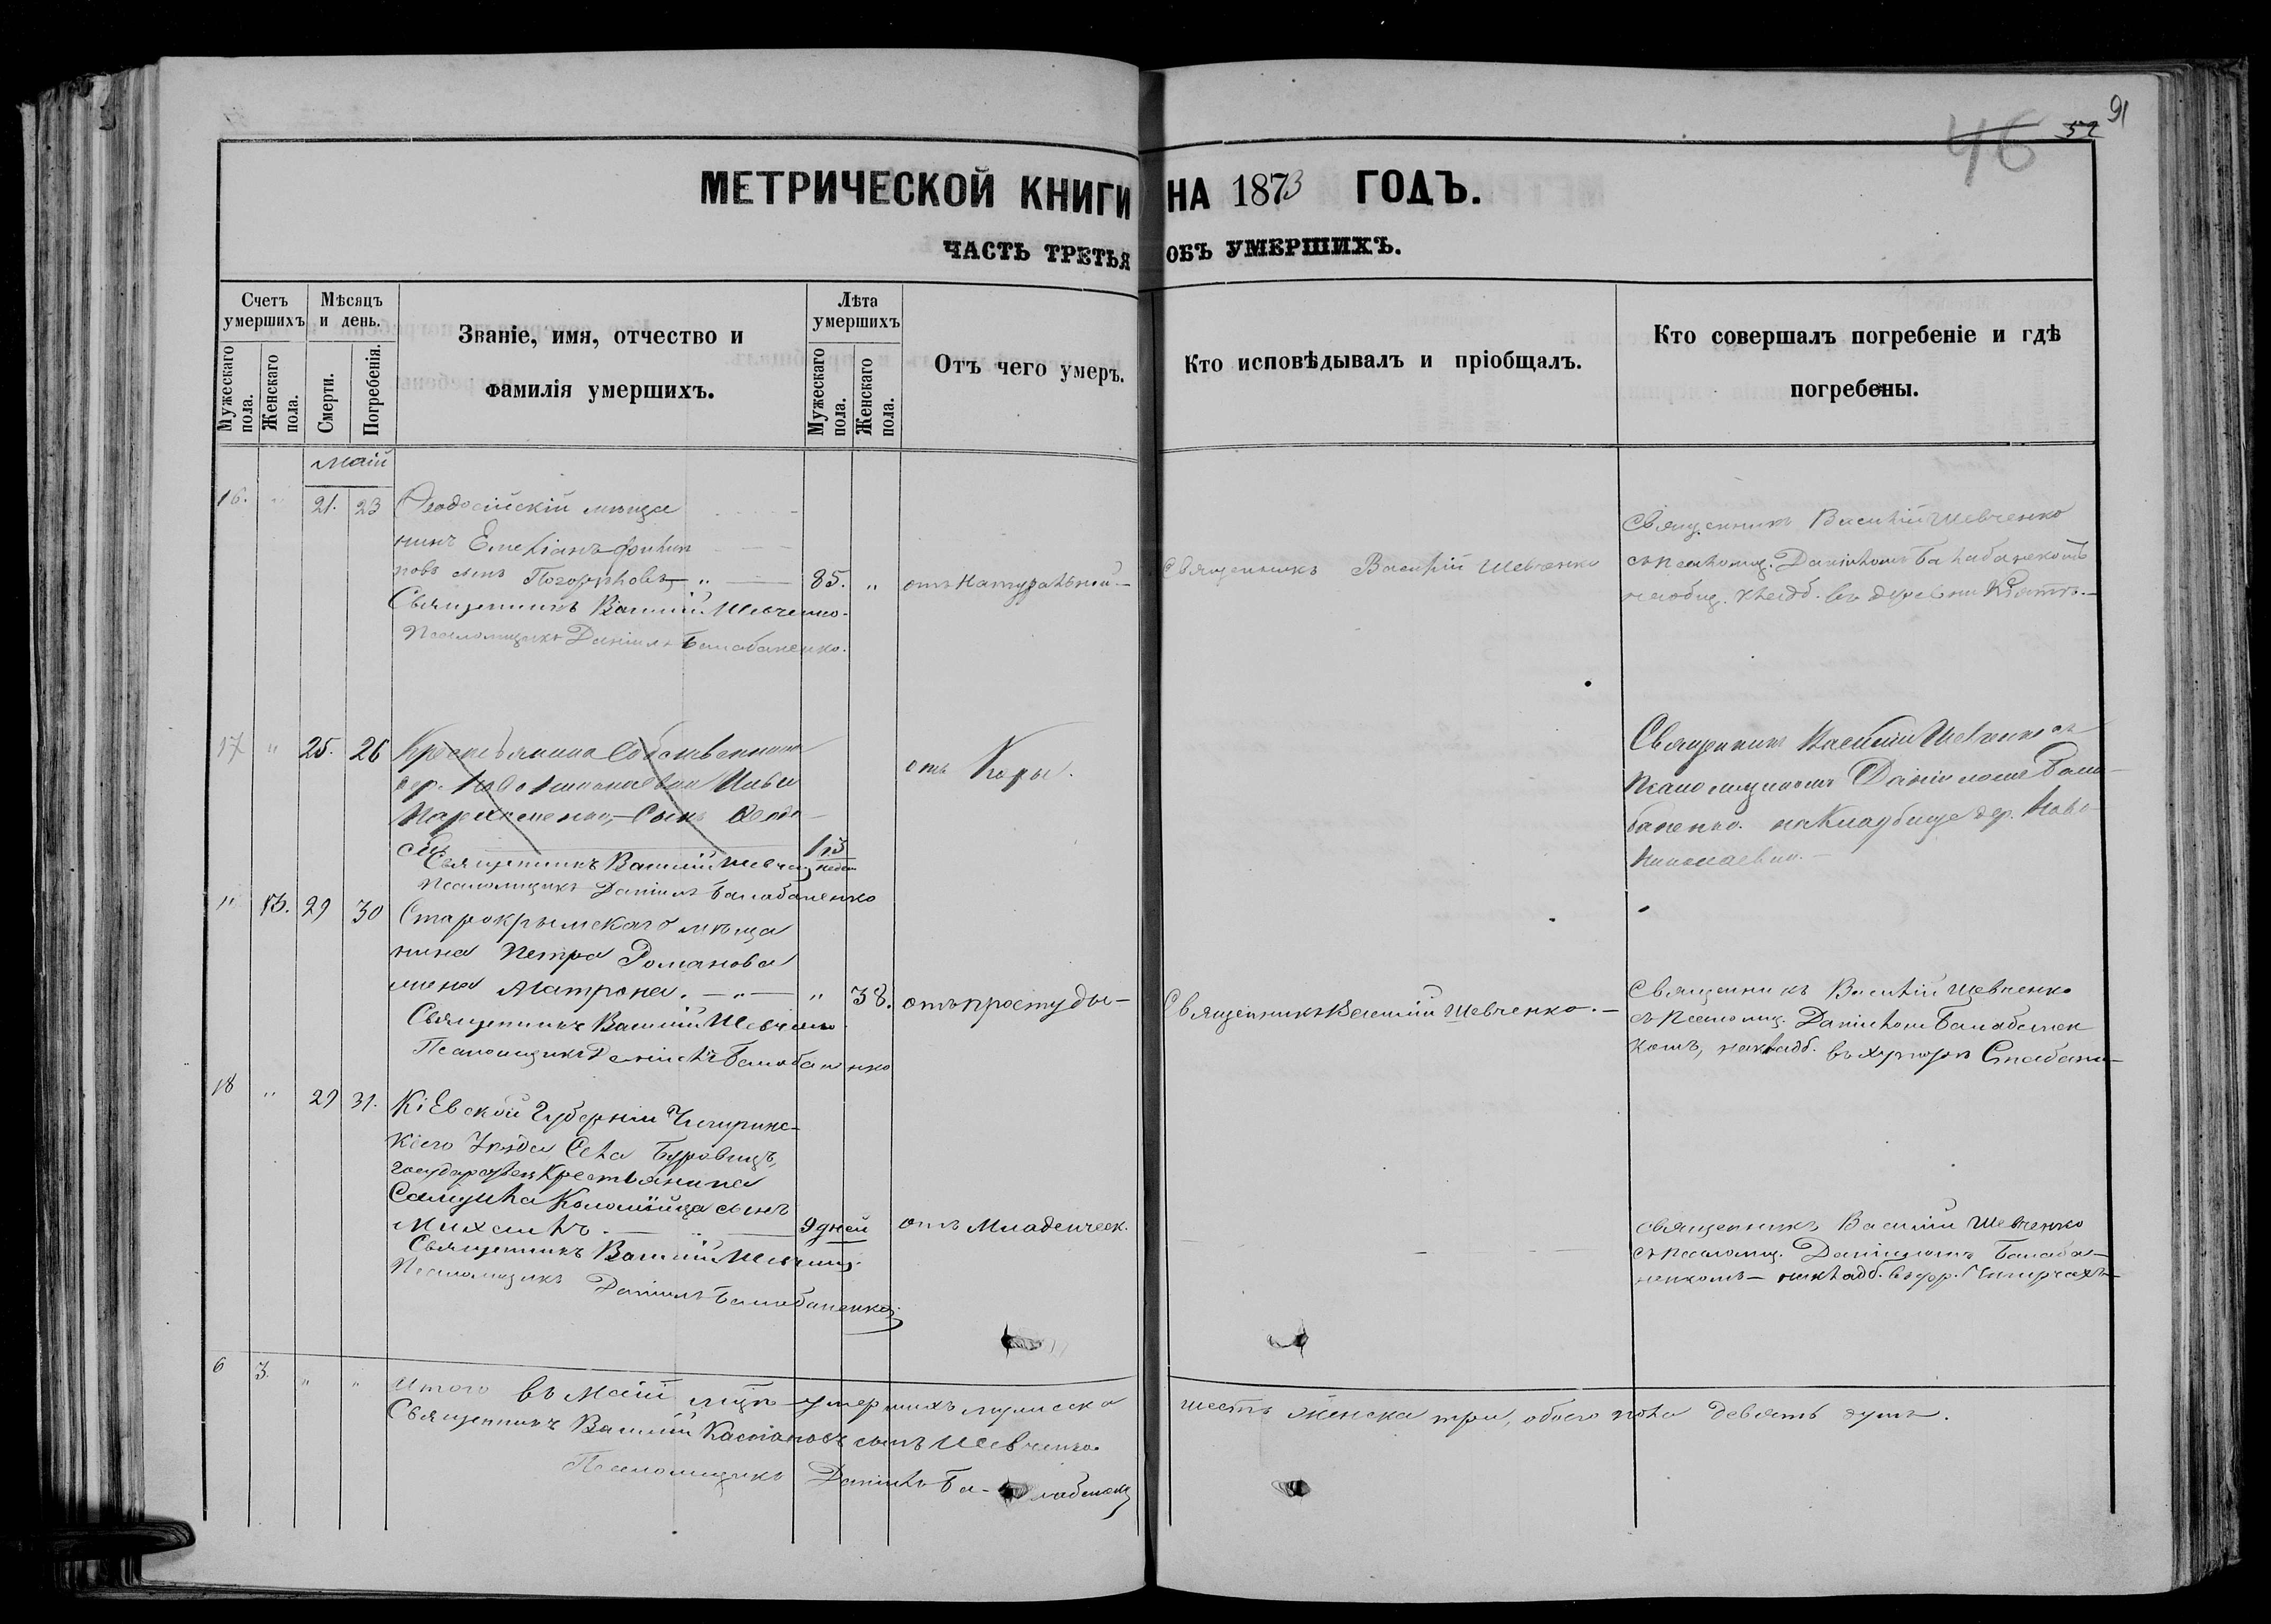 91
52
46
МЕТРИЧЕСКОЙ КНИГИ НА 1873 ГОДЪ.
ЧАСТЬ ТРЕТЬЯ ОБЪ УМЕРШИХЪ.
Счетъ умершихъ
Мужескаго пола.
Женскаго пола.
Мѣсяцъ и день.
Смерти.
Погребенія.
Званіе, имя, отчество и
фамилія умершихъ.
Лѣта умершихъ
Мужескаго пола.
Женскаго пола.
Отъ чего умеръ.
Кто исповѣдывалъ и пріобщалъ.
Кто совершалъ погребеніе и гдѣ
погребены.
Маій
16. " 21. 23
Ѳеодосійскій мѣща
нинъ Емеліанъ
сынъ 85. " отъ натуральной
Священникъ Василій Шевченко.
Псаломщикъ Даніилъ Балабаненко.
Священникъ Василій Шевченко
Священникъ Василій Шевченко
съ псаломщ. Даніиломъ Балабаненкомъ
кладб. въ деревни
17 " 25. 26
Крестьянина Собственника
дер. Ново Николаевки
Пархоменко, Сынъ
1 1/3 недѣл
отъ Коры.
Священникъ Василій Шевченко
Псаломщикъ Даніилъ Балабаненко
Священникъ Василій Шевченко съ
Псаломщикомъ Даніиломъ Бала
баненко. на Кладбище дер. Ново
Николаевки.
" 13. 29 30
Старокрымскаго мѣща
нина Петра Романова
жена Матрона. " 38. отъ простуды
Священникъ Василій Шевченко
Псаломщикъ Даніилъ Балабаненко
Священникъ Василій Шевченко.
Священникъ Василій Шевченко
съ псаломщ. Даніиломъ Балабанен
комъ, на кладб. въ хуторѣ
18 " 29 31.
Кіевской Губерніи Чигиринс
каго Уѣзда Села
Государствен Крестьянина
Самуила Коломійца сынъ
Михаилъ. 9 дней отъ Младенческ.
Священникъ Василій Шевченко.
Псаломщикъ Даніилъ Балабаненко.
Священникъ Василій Шевченко
съ псаломщ. Даніиломъ Балаба
ненкомъ на кладб.
6 3. " "
Итого въ Маіи мцѣ умершихъ мужеска шесть женска три, обоего пола девять душъ.
Священникъ Василій Касіановъ сынъ Шевченко.
Псаломщикъ Даніилъ Балабаненко